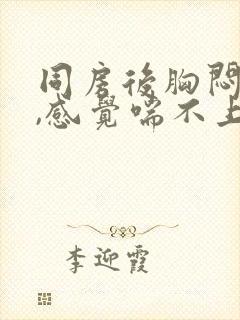 同房後胸悶
,感覺喘不上
李迎霞